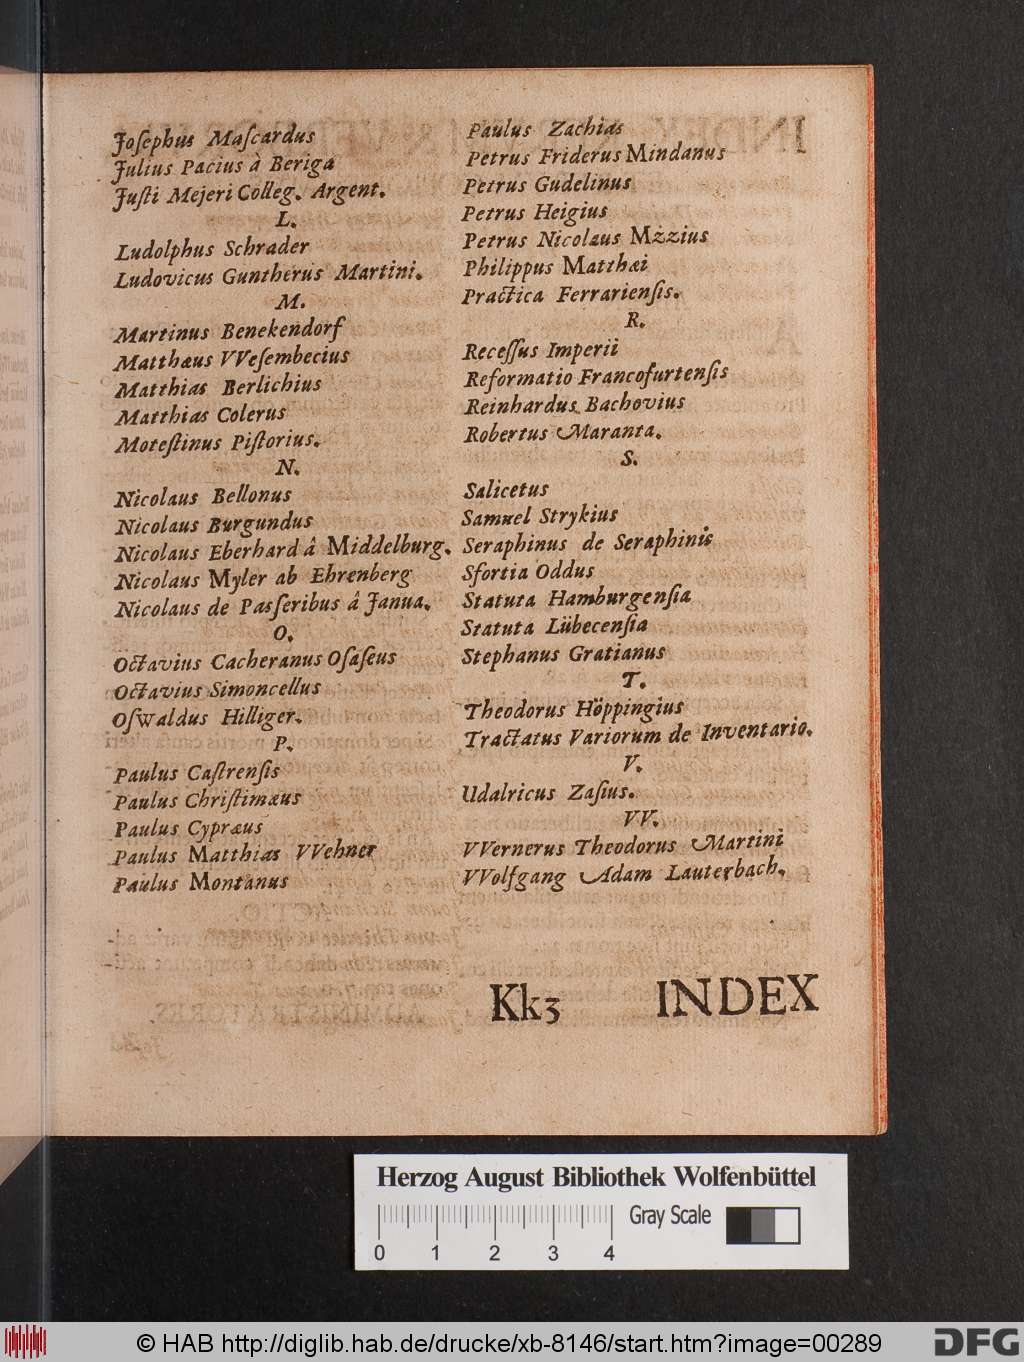 Joſephus Maſcardus
Julius Pacius à Beriga
Juſti Mejeri Colleg. Argent.
L.
Ludolphus Schrader
Ludovicus Guntherus Martini.
M.
Martinus Benekendorf
Matthæus VVeſembecius
Matthias Berlichius
Matthias Colerus
Moteſtinus Piſtorius.
N.
Nicolaus Bellonus
Nicolaus Burgundus
Nicolaus Eberhard â Middelburg.
Nicolaus Myler ab Ehrenberg
Nicolaus de Pasſeribus â Janua.
O.
Octavius Cacheranus Oſaſeus
Octavius Simoncellus
Oſwaldus Hilliger.
P.
Paulus Caſtrenſis
Paulus Chriſtimæus
Paulus Cypræus
Paulus Matthias VVehner
Paulus Montanus
Paulus Zachias
Petrus Friderus Mindanus
Petrus Gudelinus
Petrus Heigius
Petrus Nicolaus Mzzius
Philippus Matthæi
Practica Ferrarienſis.
R.
Receſſus Imperii
Reformatio Francofurtenſis
Reinhardus Bachovius
Robertus Maranta.
S.
Salicetus
Samuel Strykius
Seraphinus de Seraphinis
Sfortia Oddus
Statuta Hamburgenſia
Statuta Lübecenſia
Stephanus Gratianus
T.
Theodorus Höppingius
Tractatus Variorum de Inventario.
V.
Udalricus Zaſius.
VV.
VVernerus Theodorus Martini
VVolfgang Adam Lauterbach.
Kk3 INDEX
Herzog August Bibliothek Wolfenbüttel
Gray Scale
0 1 2 3 4
© HAB http://diglib.hab.de/drucke/xb-8146/start.htm?image=00289
DFG